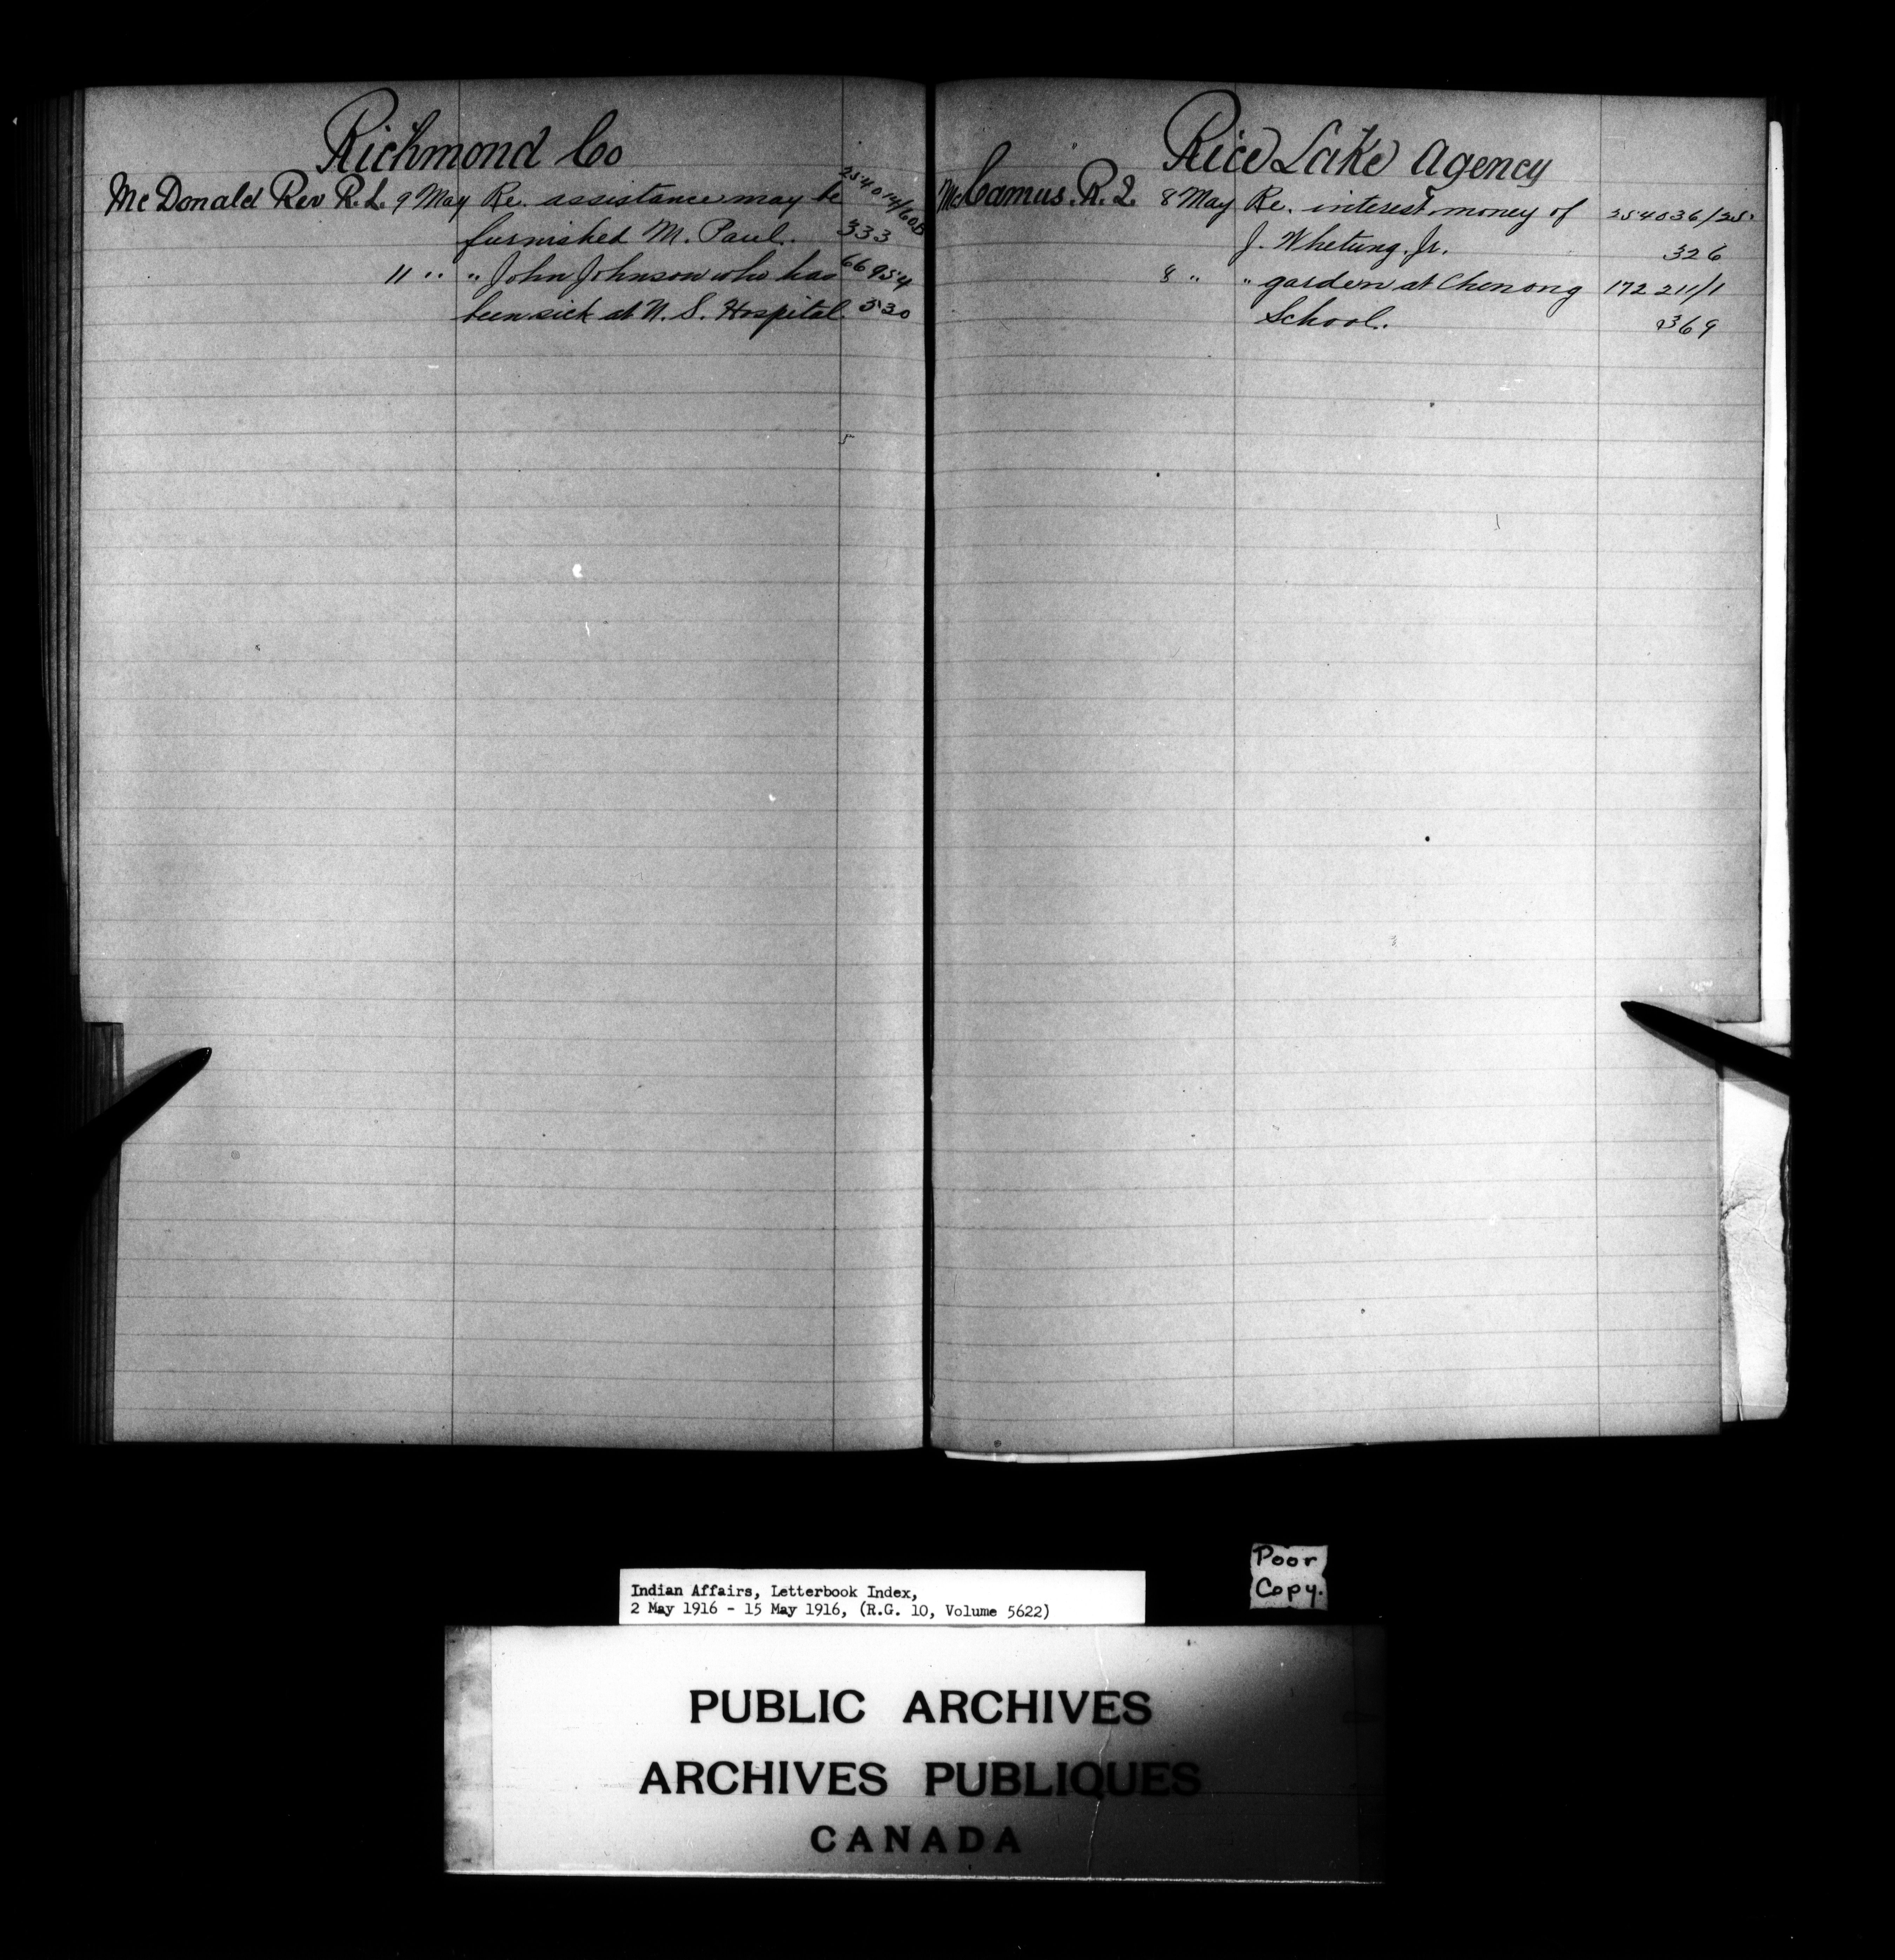 Richmond Co
McDonald Rev R. L. 9 May Re. assistance may be 254014/60B
furnished M. Paul. 333
11 " " John Johnson who has 66954
been sick at N. S. Hospital. 530
Rice Lake Agency
McCamus. R. J. 8 May Re. interest money of 254036/25
J. Whetung. Jr. 326
8 " " garden at Chenong 172 211/1
School. 369
Poor
Copy.
Indian Affairs, Letterbook Index,
2 May 1916 - 15 May 1916, (R.G. 10, Volume 5622)
PUBLIC ARCHIVES
ARCHIVES PUBLIQUES
CANADA